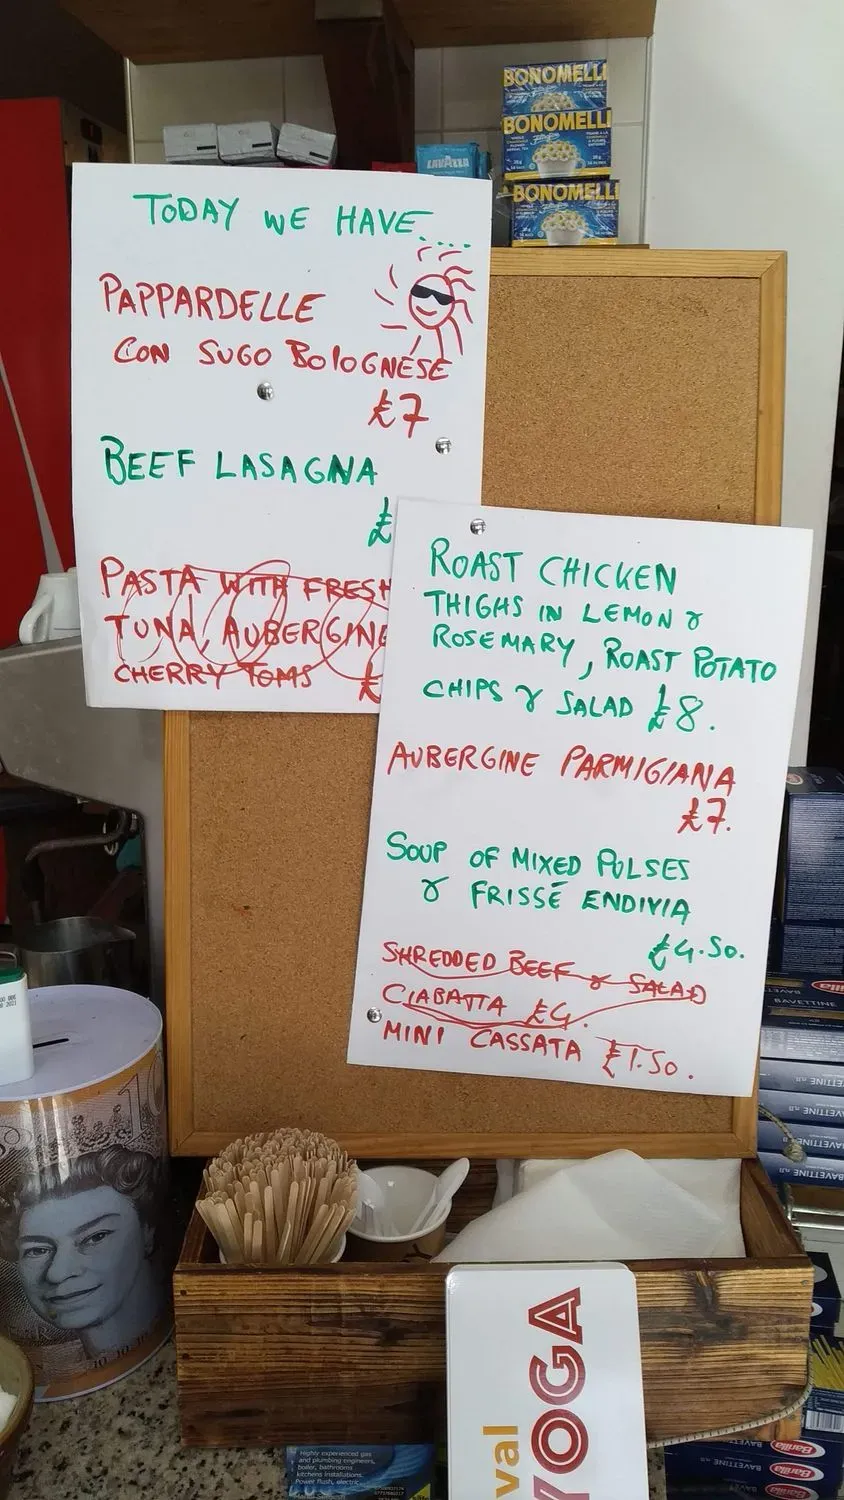 BONOMELLI
BONOMELLI
BONOMELLI
LAVAZZA
TODAY WE HAVE....
PAPPARDELLE
CON SUGO BOLOGNESE
£7
BEEF LASAGNA
£
PASTA WITH FRESH
TUNA, AUBERGINE
CHERRY TOMS £
ROAST CHICKEN
THIGHS IN LEMON &
ROSEMARY, ROAST POTATO
CHIPS & SALAD £8.
AUBERGINE PARMIGIANA
£7.
SOUP OF MIXED PULSES
& FRISSÉ ENDIVIA
£4.50.
SHREDDED BEEF & SALAD
CIABATTA £4.
MINI CASSATA £1.50.
Barilla
BAVETTINE
BAVETTINE
BAVETTINE
BAVETTINE
BAVETTINE
val
YOGA
Highly experienced gas
and plumbing engineers,
boiler, bathrooms
kitchens installations.
Power flush, electric
Barilla
BAVETTINE
Barilla